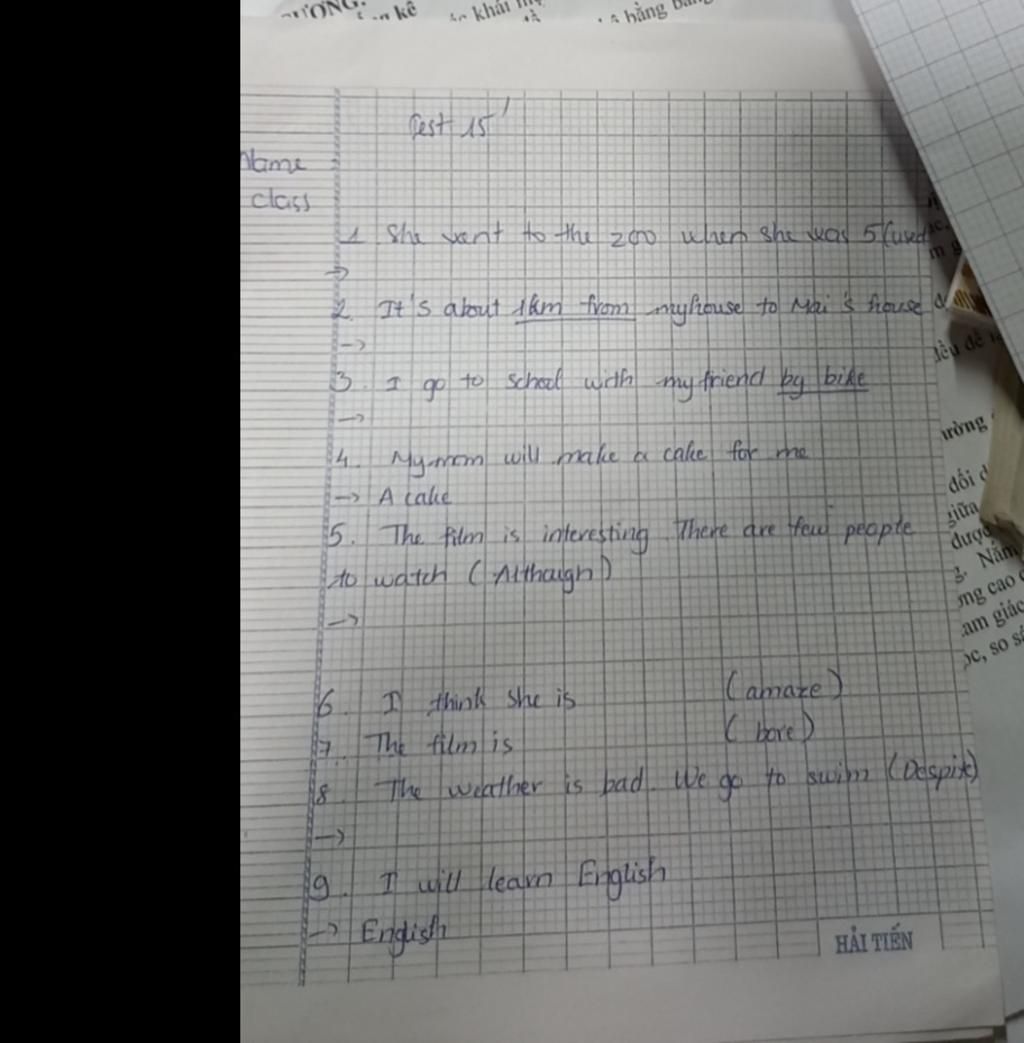 ƯƠNG.
kê
khái
bằng
Test 15'
Name :
class
1. She went to the zoo when she was 5 (used
->
2. It's about 1km from my house to Mai's house
->
3. I go to school with my friend by bike
->
4. My mom will make a cake for me
-> A cake
5. The film is interesting. There are few people
to watch (Althaigh)
->
6. I think she is (amaze)
7. The film is (bore)
8. The weather is bad. We go to swim (Despite)
->
9. I will learn English
-> English
HẢI TIẾN
đều đề
ường
đối
giữa
được
g. Nắm
ng cao
am giác
ọc, so